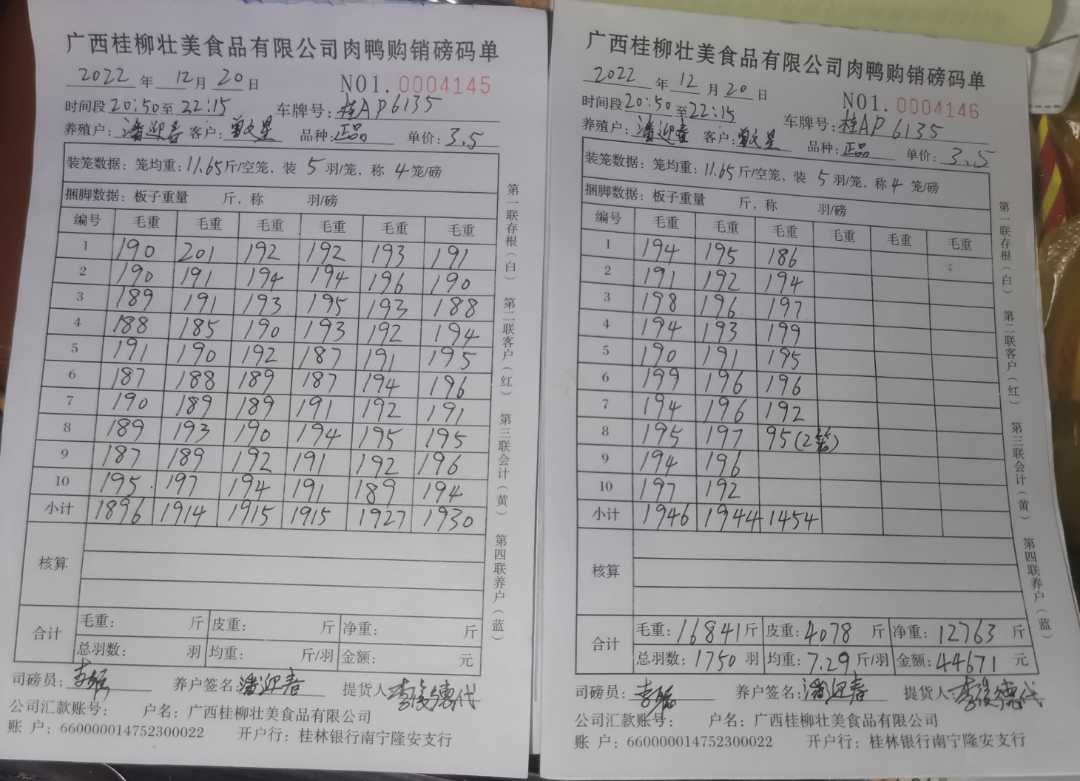 广西桂柳壮美食品有限公司肉鸭购销磅码单
2022 年 12 月 20 日 NO1. 0004145
时间段 20:50 至 22:15 车牌号: 桂AP6135
养殖户: 潘迎春 客户: 品种: 正品 单价: 3.5
装笼数据: 笼均重: 11.65 斤/空笼、装 5 羽/笼, 称 4 笼/磅
捆脚数据: 板子重量 斤, 称 羽/磅
编号 毛重 毛重 毛重 毛重 毛重 毛重
1 190 201 192 192 193 191
2 190 191 194 194 196 190
3 189 191 193 195 193 188
4 188 185 190 193 192 194
5 191 190 192 187 191 195
6 187 188 189 187 194 196
7 190 189 189 191 192 191
8 189 193 190 194 195 195
9 187 189 192 191 192 196
10 195 197 194 191 189 194
小计 1896 1914 1915 1915 1927 1930
核算
合计 毛重: 斤 皮重: 斤 净重: 斤
总羽数: 羽 均重: 斤/羽 金额: 元
司磅员: 养户签名: 潘迎春 提货人
公司汇款账号: 户名: 广西桂柳壮美食品有限公司
账 户: 660000014752300022 开户行: 桂林银行南宁隆安支行
第一联存根(白) 第二联客户(红) 第三联会计(黄) 第四联养户(蓝)
广西桂柳壮美食品有限公司肉鸭购销磅码单
2022 年 12 月 20 日 NO1. 0004146
时间段 20:50 至 22:15 车牌号: 桂AP6135
养殖户: 潘迎春 客户: 品种: 正品 单价: 3.5
装笼数据: 笼均重: 11.65 斤/空笼、装 5 羽/笼, 称 4 笼/磅
捆脚数据: 板子重量 斤, 称 羽/磅
编号 毛重 毛重 毛重 毛重 毛重 毛重
1 194 195 186
2 191 192 194
3 198 196 197
4 194 193 199
5 190 191 195
6 199 196 196
7 194 196 192
8 195 197 95(2笼)
9 194 196
10 197 192
小计 1946 1944 1454
核算
合计 毛重: 16841 斤 皮重: 4078 斤 净重: 12763 斤
总羽数: 1750 羽 均重: 7.29 斤/羽 金额: 44671 元
司磅员: 养户签名: 潘迎春 提货人
公司汇款账号: 户名: 广西桂柳壮美食品有限公司
账 户: 660000014752300022 开户行: 桂林银行南宁隆安支行
第一联存根(白) 第二联客户(红) 第三联会计(黄) 第四联养户(蓝)